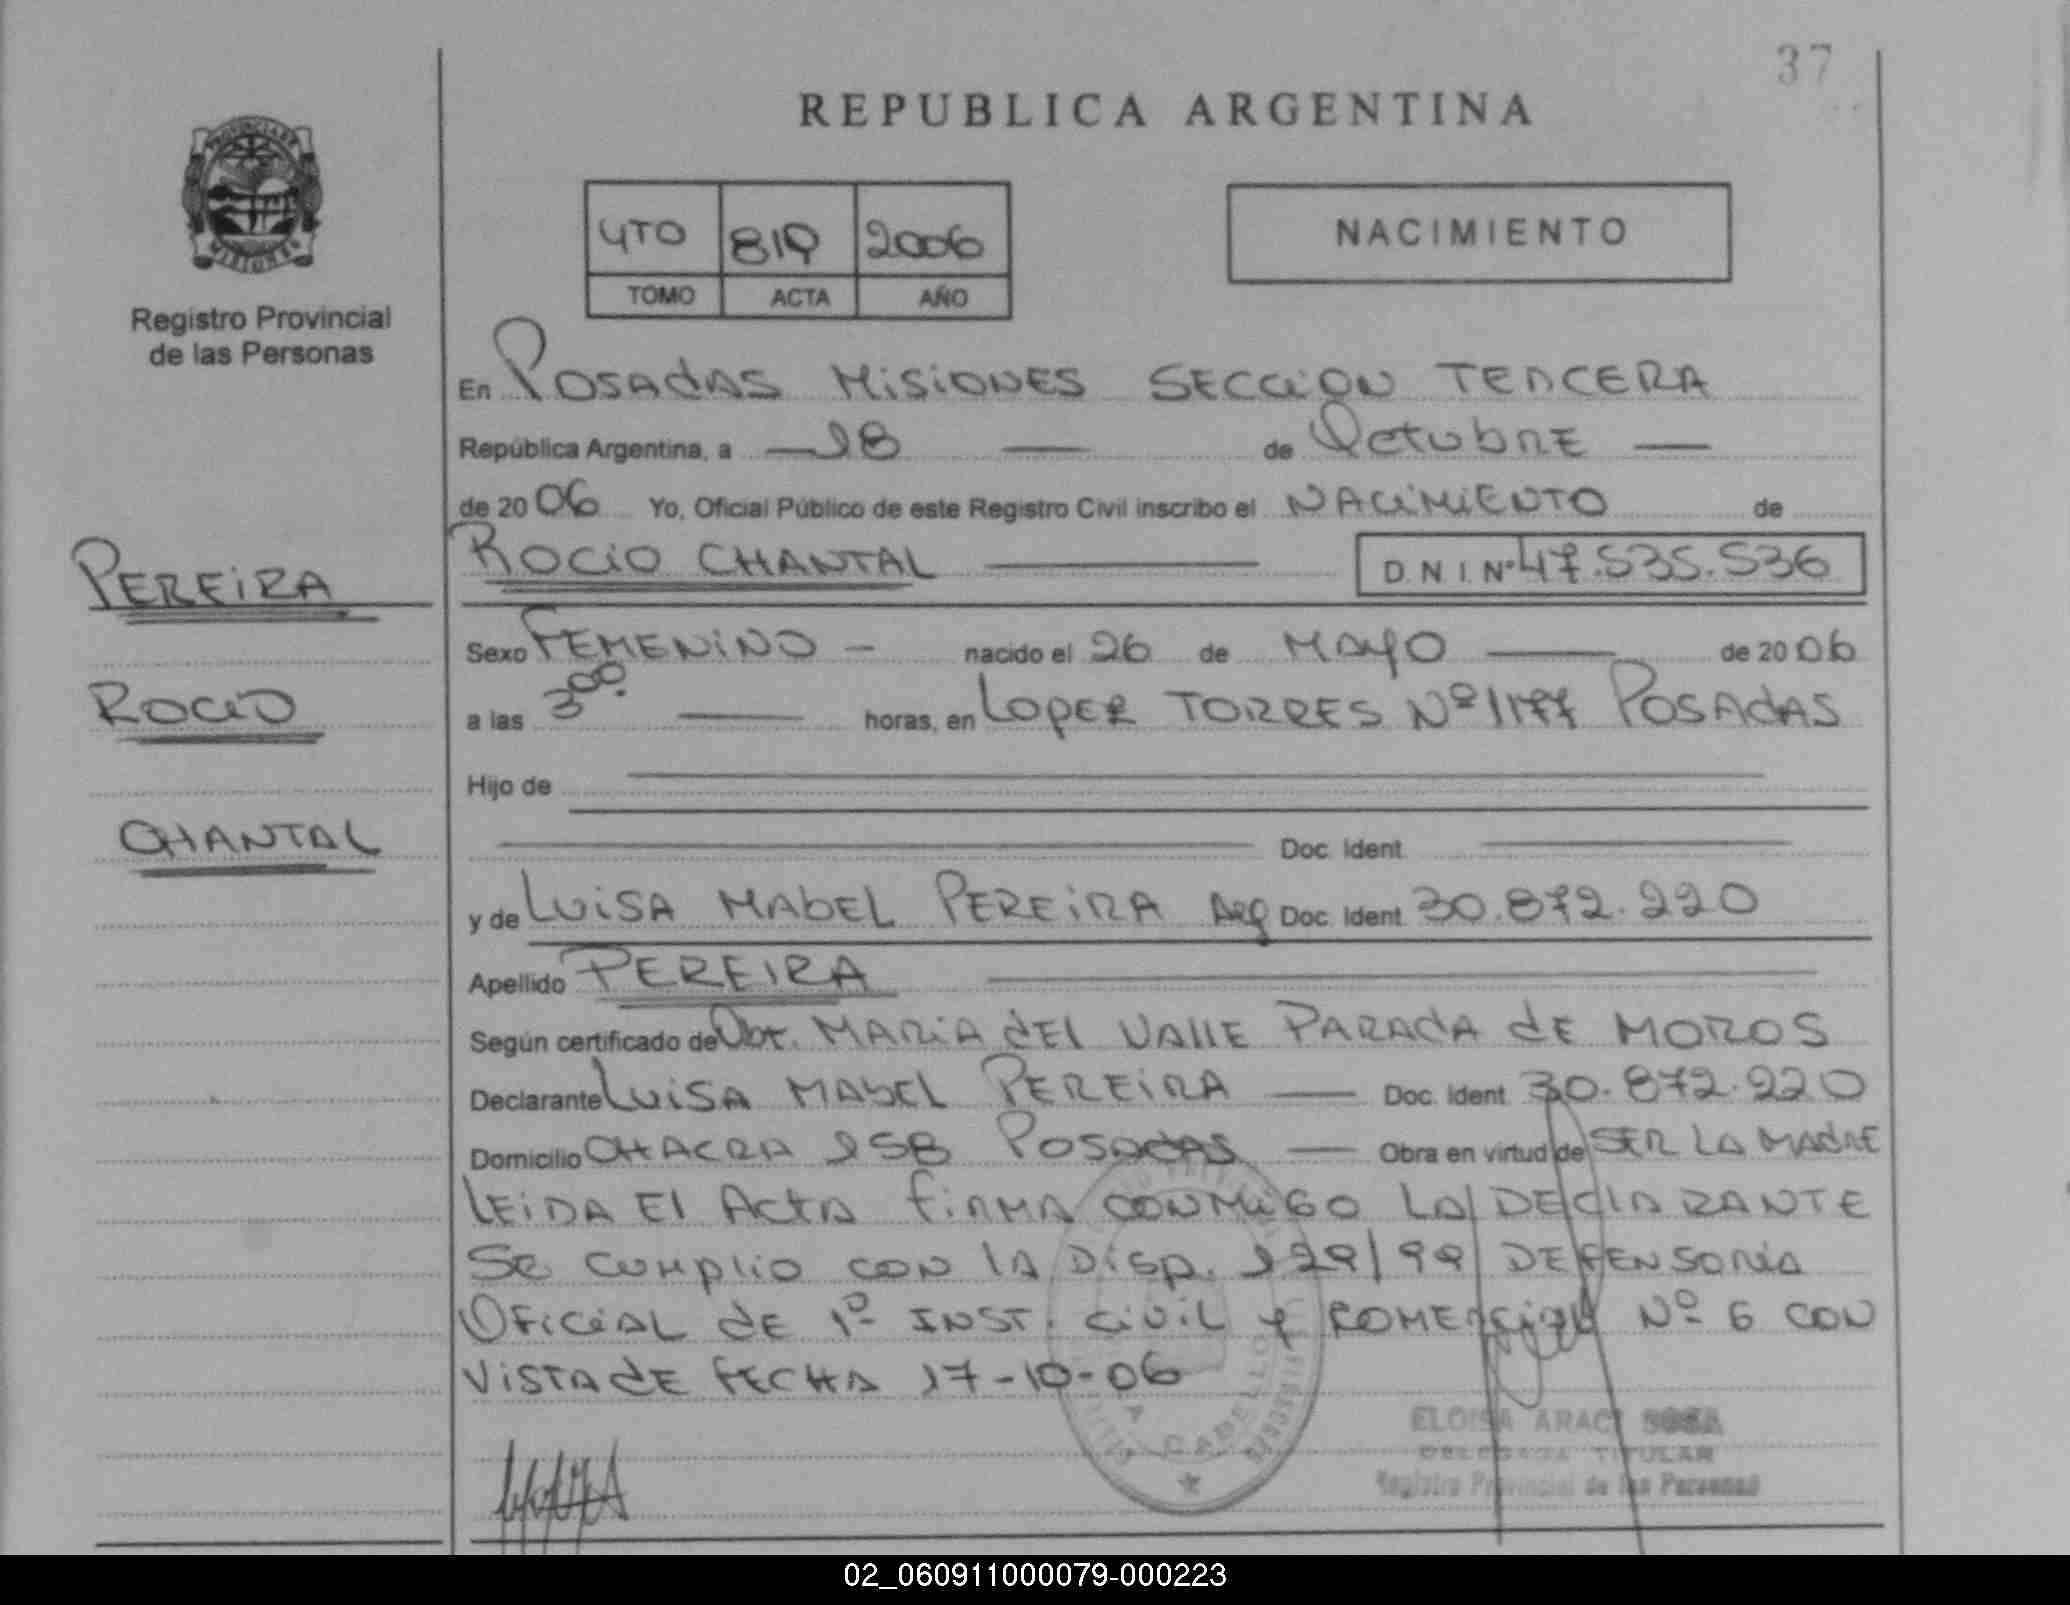 37
REPUBLICA ARGENTINA
4TO 819 2006
TOMO ACTA AÑO
NACIMIENTO
PROVINCIA DE
MISIONES
Registro Provincial
de las Personas
En POSAdAS MiSiONES SECCiON TERCERA
República Argentina, a — 18 — de Octubre —
de 20 06 Yo, Oficial Público de este Registro Civil inscribo el NACiMiENTO de
ROCiO CHANTAL — D.N.I. Nº 47.535.536
PEREiRA
Sexo FEMENiNO - nacido el 26 de MAyO — de 20 06
ROCiO
a las 3 00. — horas, en LOPEZ TORRES Nº 1177 POSAdAS
Hijo de
CHANTAL
Doc. Ident.
y de LUiSA MAbEL PEREiRA Arg Doc. Ident. 30.872.220
Apellido PEREIRA
Según certificado de Obt. MARiA dEl VAllE PARAdA dE MOROS
Declarante LUiSA MAbEL PEREiRA — Doc. Ident. 30.872.220
Domicilio CHACRA 158 POSAdAS — Obra en virtud de SER LA MAdRE
LEiDA El ActA fiRMA CONMiGO LA DEClARANTE
Se cumplio con lA Disp. 129/99 DEFENSORiA
OFiCiAL dE 1º INST. CiviL y COMERCiAL Nº 6 CON
ViSTA dE FECHA 17-10-06
CABELLO
ELOISA ARACI SOSA
DELEGADA TITULAR
Registro Provincial de las Personas
02_060911000079-000223